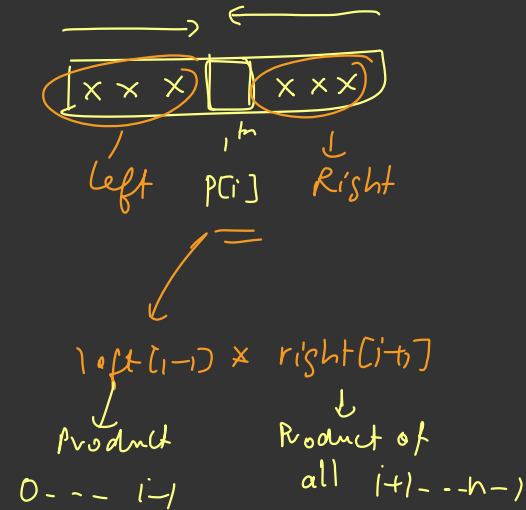 x x x x x x
ith
left P[i] Right
left[i-1] * right[i+1]
Product Product of
0---- i-1 all i+1----n-1